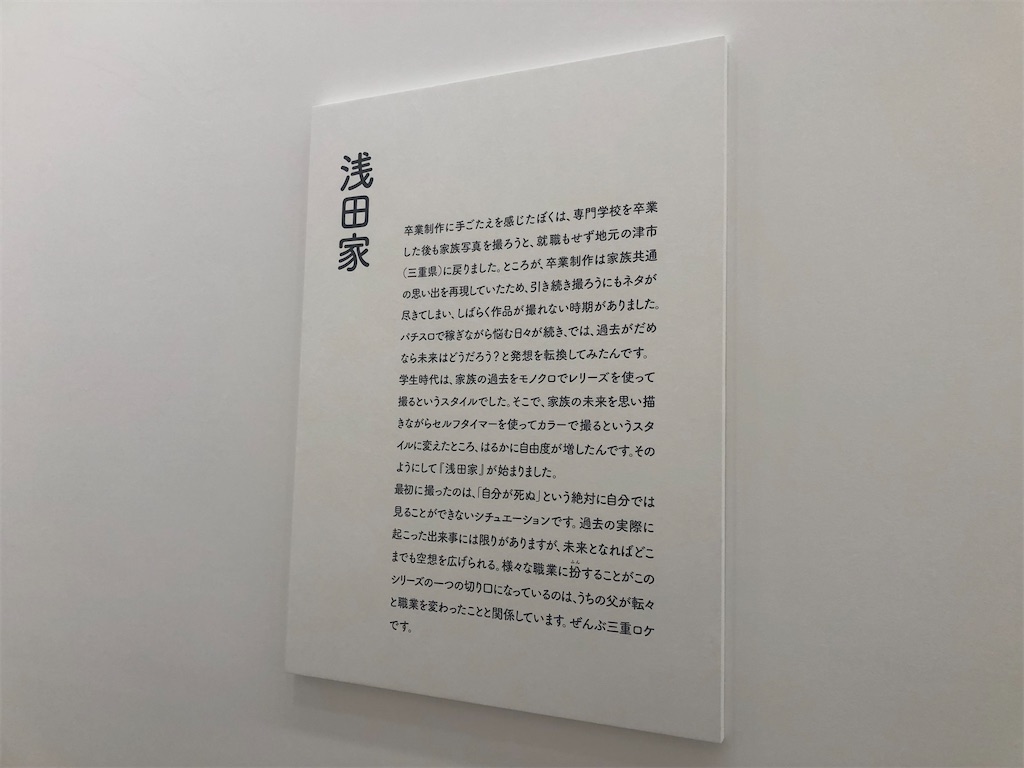 浅田家
卒業制作に手ごたえを感じたぼくは、専門学校を卒業
した後も家族写真を撮ろうと、就職もせず地元の津市
(三重県)に戻りました。ところが、卒業制作は家族共通
の思い出を再現していたため、引き続き撮ろうにもネタが
尽きてしまい、しばらく作品が撮れない時期がありました。
パチスロで稼ぎながら悩む日々が続き、では、過去がだめ
なら未来はどうだろう?と発想を転換してみたんです。
学生時代は、家族の過去をモノクロでレリーズを使って
撮るというスタイルでした。そこで、家族の未来を思い描
きながらセルフタイマーを使ってカラーで撮るというスタ
イルに変えたところ、はるかに自由度が増したんです。その
ようにして『浅田家』が始まりました。
最初に撮ったのは、「自分が死ぬ」という絶対に自分では
見ることができないシチュエーションです。過去の実際に
起こった出来事には限りがありますが、未来となればどこ
までも空想を広げられる。様々な職業に扮することがこの
シリーズの一つの切り口になっているのは、うちの父が転々
と職業を変わったことと関係しています。ぜんぶ三重ロケ
です。